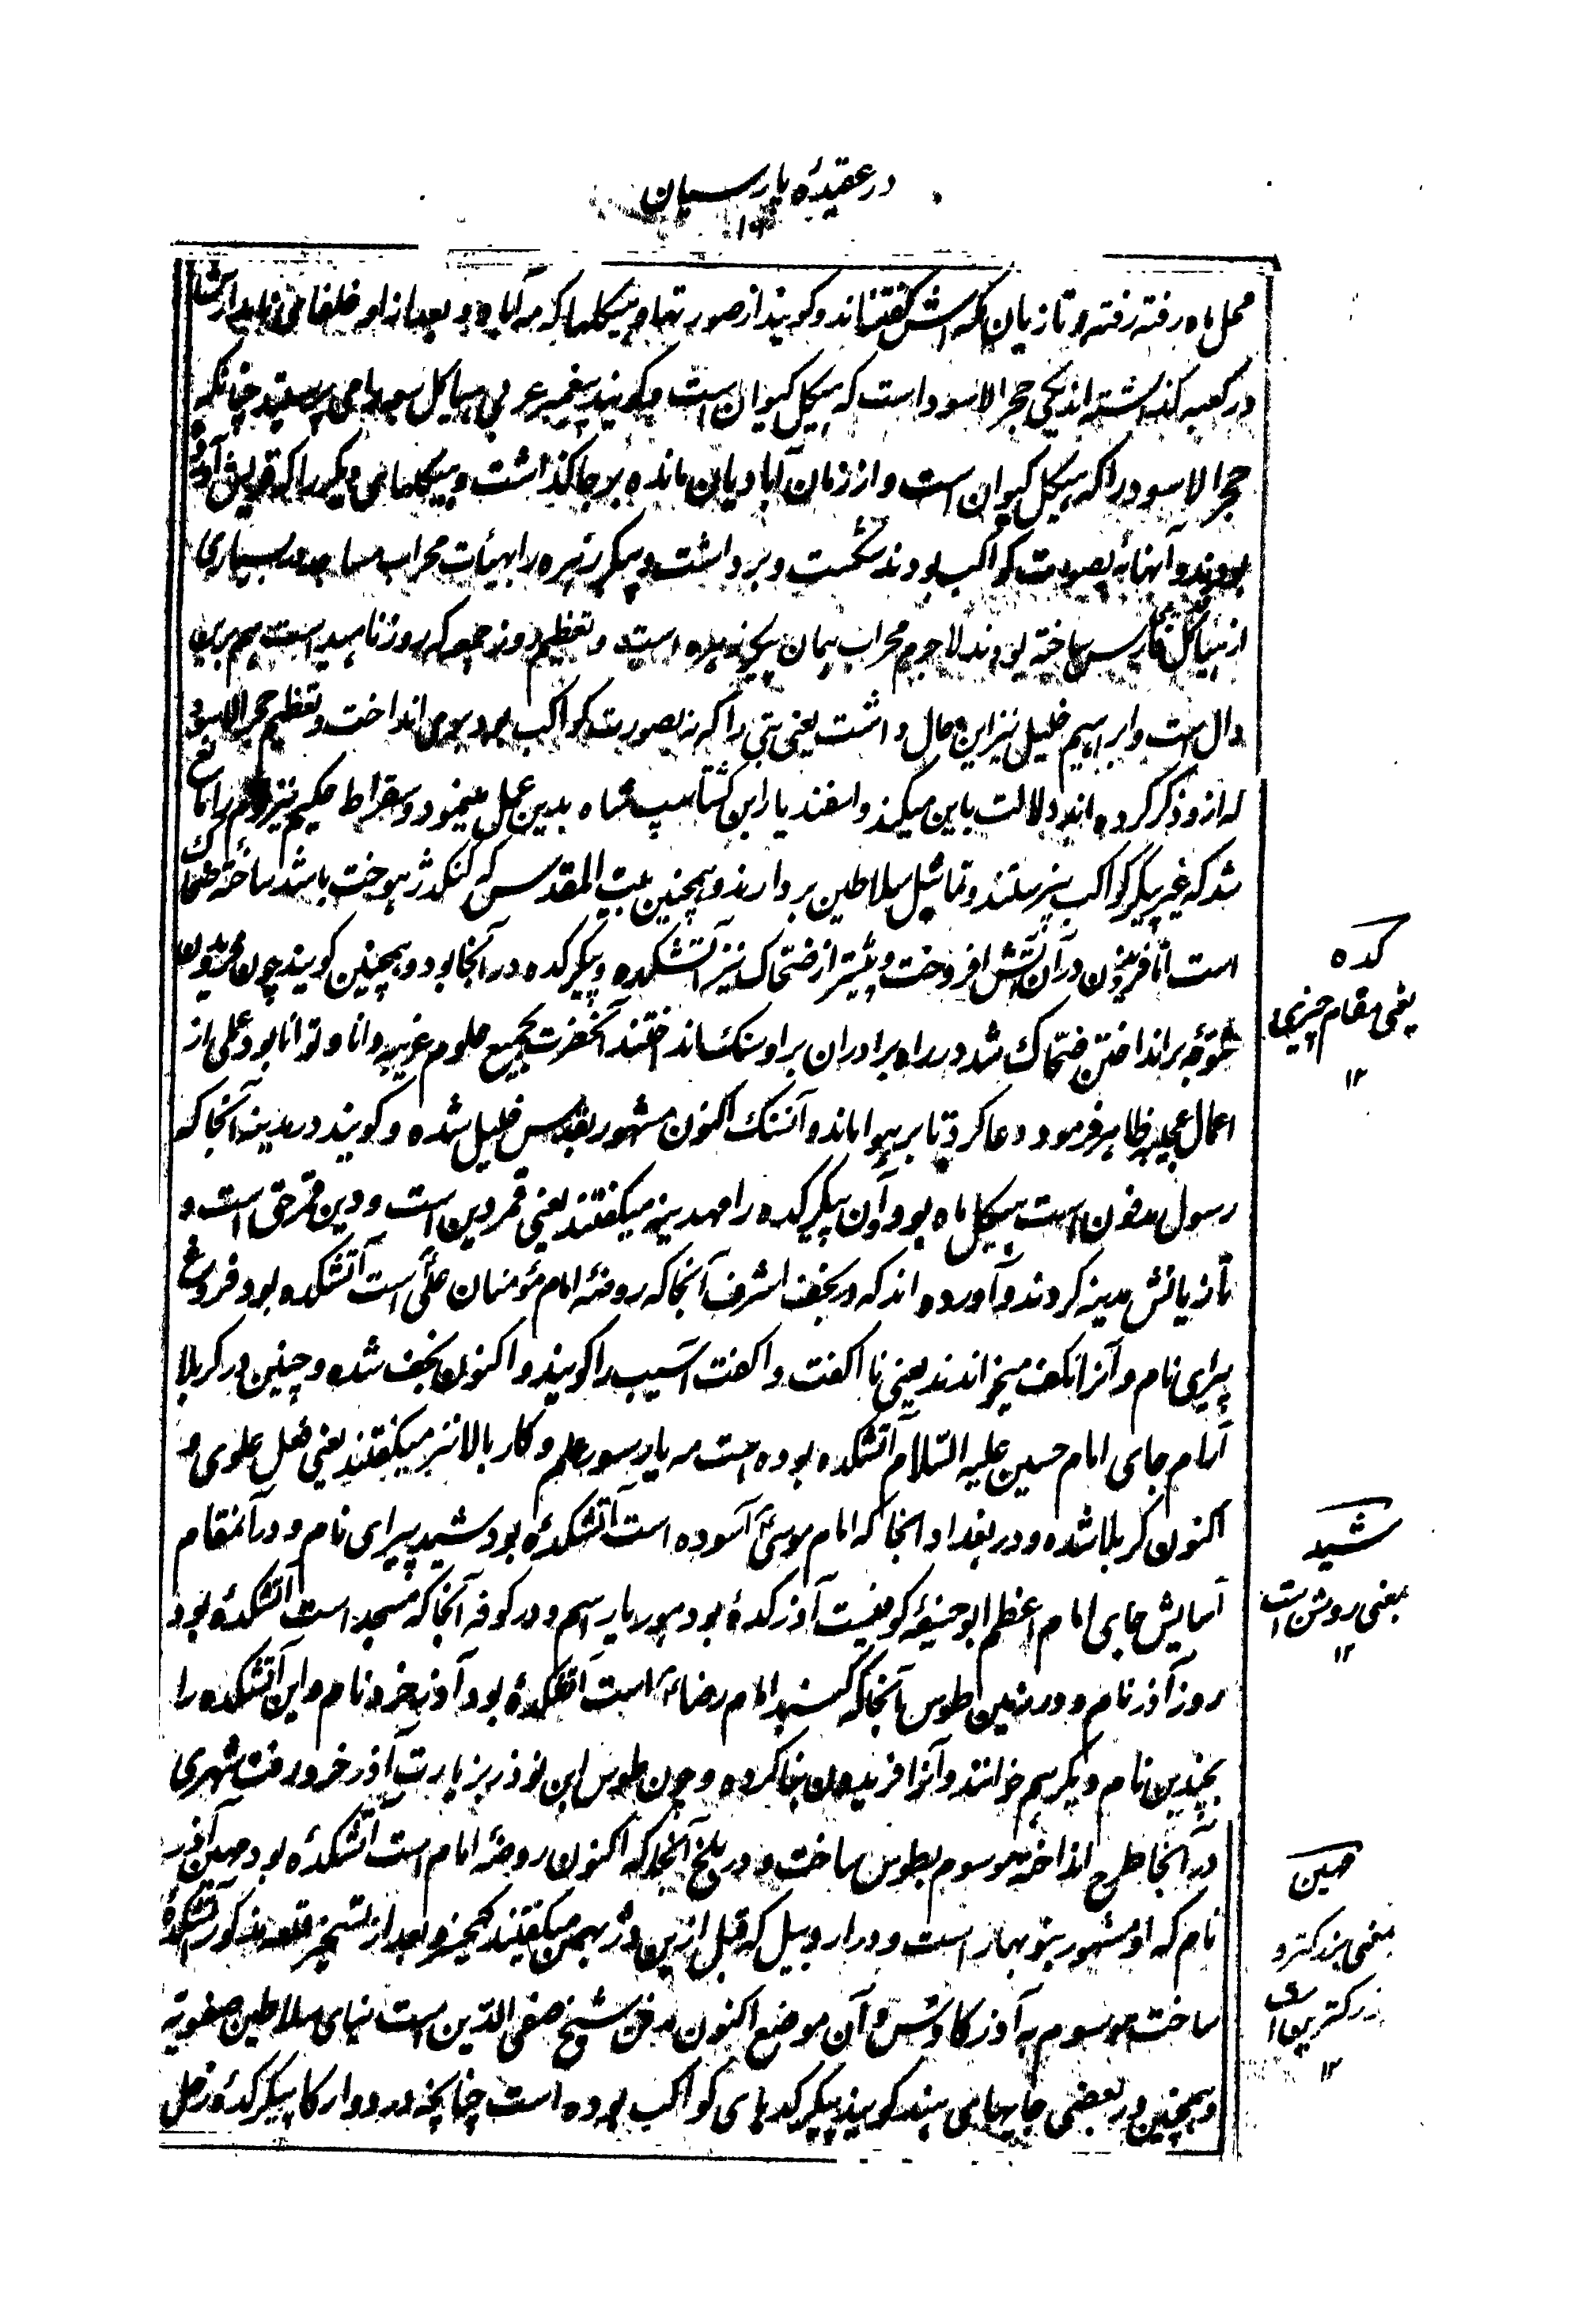 در عقیدۀ پارسیان
۱۶
محل ماه رفته رفته و تازیان مکه اش گفتند و گویند از صور تها و هیکلها که مه آباد و بعد از او خلفا
در کعبه گذاشته اند یکی حجر الاسود است که هیکل کیوان است و گویند پیغمبر عربی هیاکل سبعه را می پرستید چنانکه
حجر الاسود را که هیکل کیوان است و از زمان آبادیان مانده بر جا گذاشت و هیکلهای دیگر را که قریش آورده
بودند و آنها نه بصورت کواکب بودند شکست و برداشت و پیکر زهره را بهیئات محراب مساجد در بسیاری
از هیاکل فارس ساخته بودند لاجرم محراب همان پیکر زهره است و تعظیم روز جمعه که روز ناهید است هم برین
دال است و ابراهیم خلیل نیز این حال داشت یعنی بتی را که نه بصورت کواکب بود می انداخت و تعظیم حجر الاسود
که ازو ذکر کرده اند دلالت باین میکند و اسفندیار ابن گشتاسپ شاه بدین عمل مینمود و سقراط حکیم نیز مردم را مانع
شد که غیر پیکر کواکب نپرستند و تماثیل سلاطین بردارند و همچنین بیت المقدس که کنکدژ هوخت باشد ساخته ضحاک
است اما فریدون در آن آتش افروخت و پیشتر از ضحاک نیز آتشکده و پیکر کده در آنجا بود و همچنین گویند چون فریدون
متوجه برانداختن ضحاک شد در راه برادران بر او سنگ انداختند آنحضرت بجمیع علوم غریبه دانا و توانا بود عملی از
اعمال عجیبه ظاهر فرمود دعا کرد تا بر هوا ماند و آن سنگ اکنون مشهور بقدس خلیل شده و گویند در مدینه آنجا که
رسول مدفون است هیکل ماه بود و آن پیکر کده را مهدینه میگفتند یعنی قمر دین است و دین قمر حق است و
تازیانش مدینه کردند و آورده اند که در نجف اشرف آنجا که روضۀ امام مؤمنان علیؑ است آتشکده بود فروغ
پیرای نام و آنرا نکفت میخواندند یعنی نا اکفت و اکفت آسیب را گویند و اکنون نجف شده و چنین در کربلا
آرام جای امام حسین علیه السّلام آتشکده بوده است مه یار سور علم و کار بالا نیز میگفتند یعنی فعل علوی و
اکنون کربلا شده و در بغداد آنجا که امام موسیؑ آسوده است آتشکدۀ بود شید پیرای نام و در آنمقام
آسایش جای امام اعظم ابو حنیفۀ کوفیست آذر کدۀ بود هور یار اسم و در کوفه آنجا که مسجد است آتشکدۀ بود
روز آذر نام و در زمین طوس آنجا که گنبد امام رضاؑ است آتشکدۀ بود آذر خرد نام و این آتشکده را
بچندین نام دیگر هم خوانند و آنرا فریدون بنا کرده و چون طوس ابن نوذر بزیارت آذر خرد رفت شهری
در آنجا طرح انداخته موسوم بطوس ساخت و در بلخ آنجا که اکنون روضۀ امام است آتشکدۀ بود مهین آذر
نام که او مشهور بنوبهار است و در اردبیل که قبل ازین دژ بهمن میگفتند کیخسرو بعد از تسخیر قلعه مذکور آتشکدۀ
ساخت موسوم به آذر کاوش و آن موضع اکنون مدفن شیخ صفی الدین است نیای سلاطین صفویه
و همچنین در بعضی جایهای هند گویند پیکر کدهای کواکب بوده است چنانچه در دوارکا پیکر کدۀ زحل
کده
یعنی مقام چیزی
۱۲
شید
بمعنی روشن است
۱۲
مهین
بمعنی بزرگتر و
بزرگترین است
۱۲